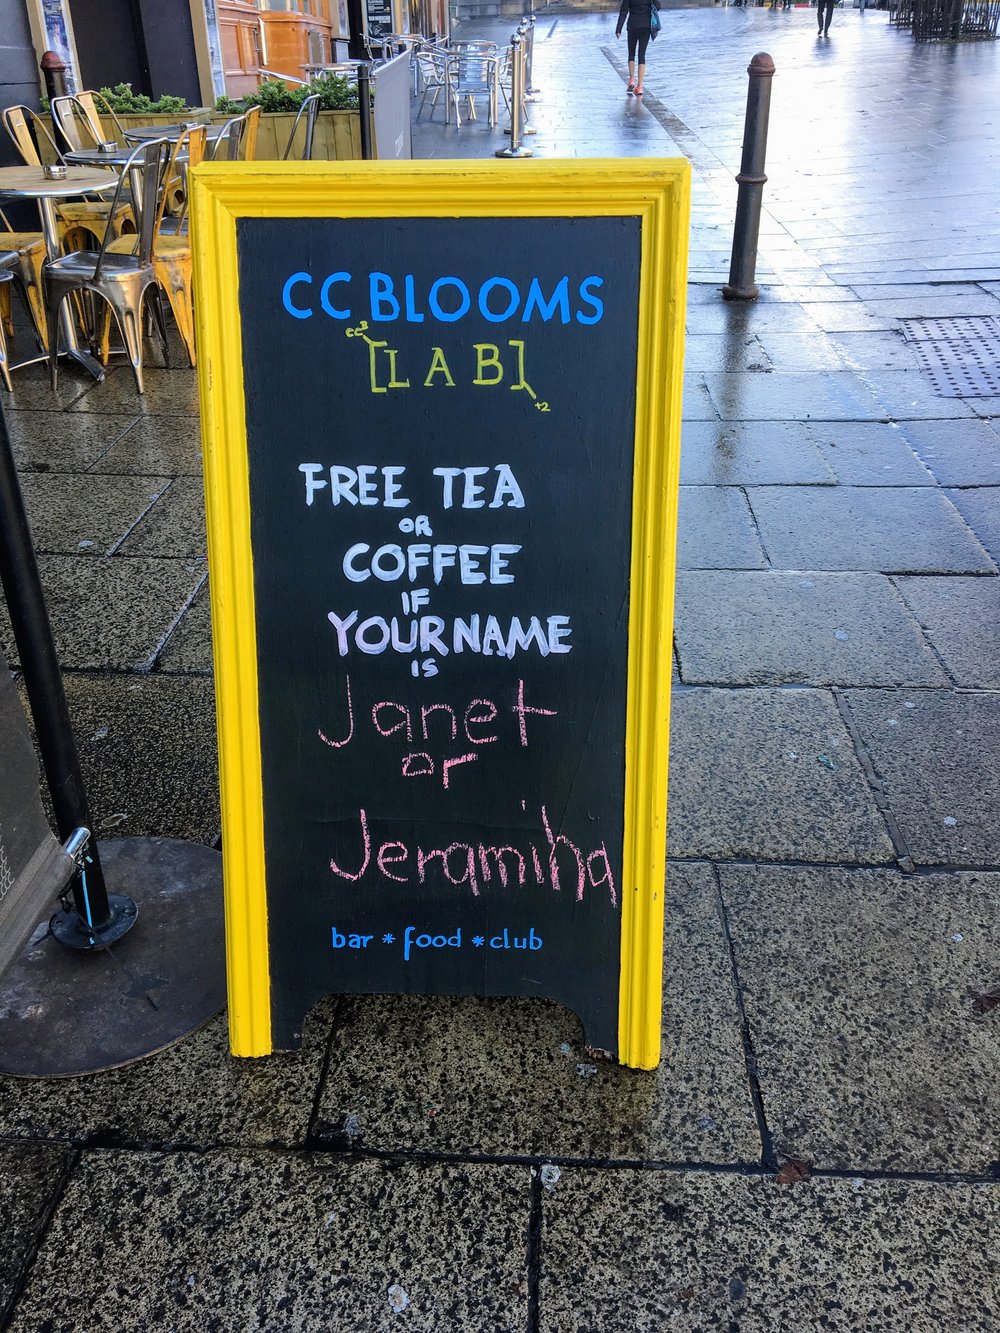 CC BLOOMS
CC³
[LAB]
+2
FREE TEA
OR
COFFEE
IF
YOUR NAME
IS
Janet
or
Jeramiha
bar * food * club